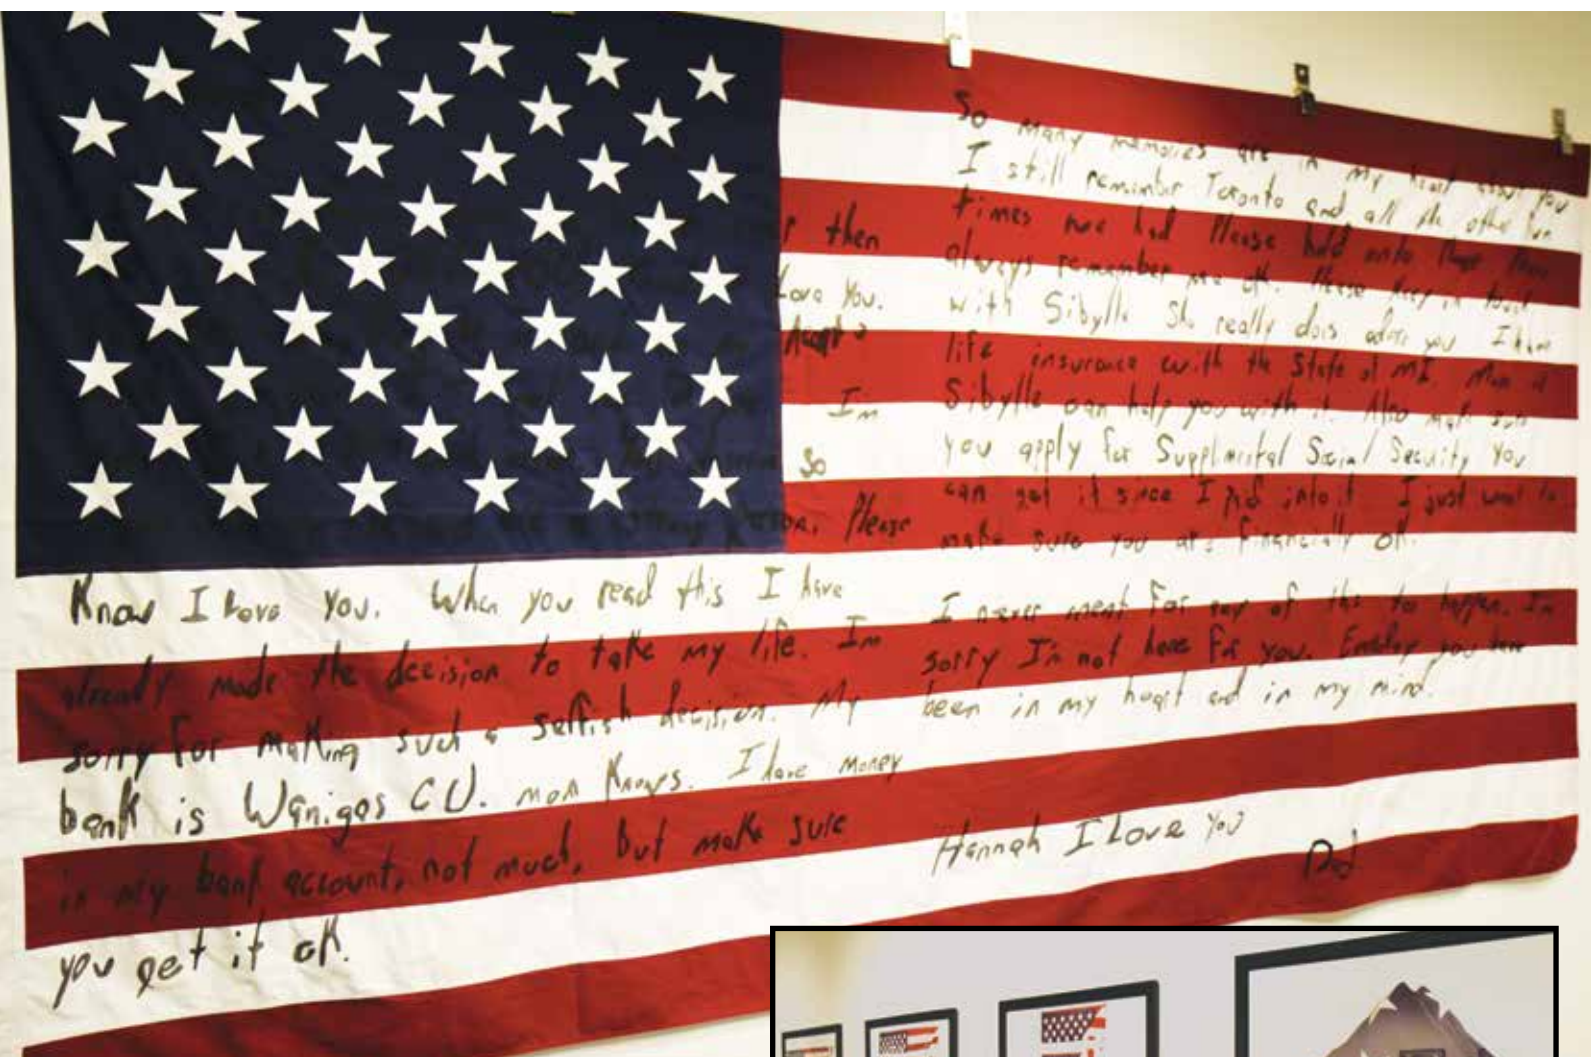 then
Love You.
Im
So
Please
Know I Love You. When you read this I have
already made the decision to take my life. Im
sorry for making such a selfish decision. My
bank is Wanigas CU. mom knows. I have money
in my bank account, not much, but make sure
you get it ok.
So many memories are in my heart about you
I still remember Toronto and all the other fun
times we had Please hold onto
always remember me ok. Please keep in touch
with Sibylle She really does adore you I have
life insurance with the State of MI. Mom or
Sibylle can help you with it. Also make sure
you apply for Supplmental Social Security You
can get it since I pid into it I just want to
make sure you are financially ok.
I never ment for any of this to happen. Im
sorry I'm not here for you. you have
been in my heart and in my mind.
Hannah I Love You
Dad